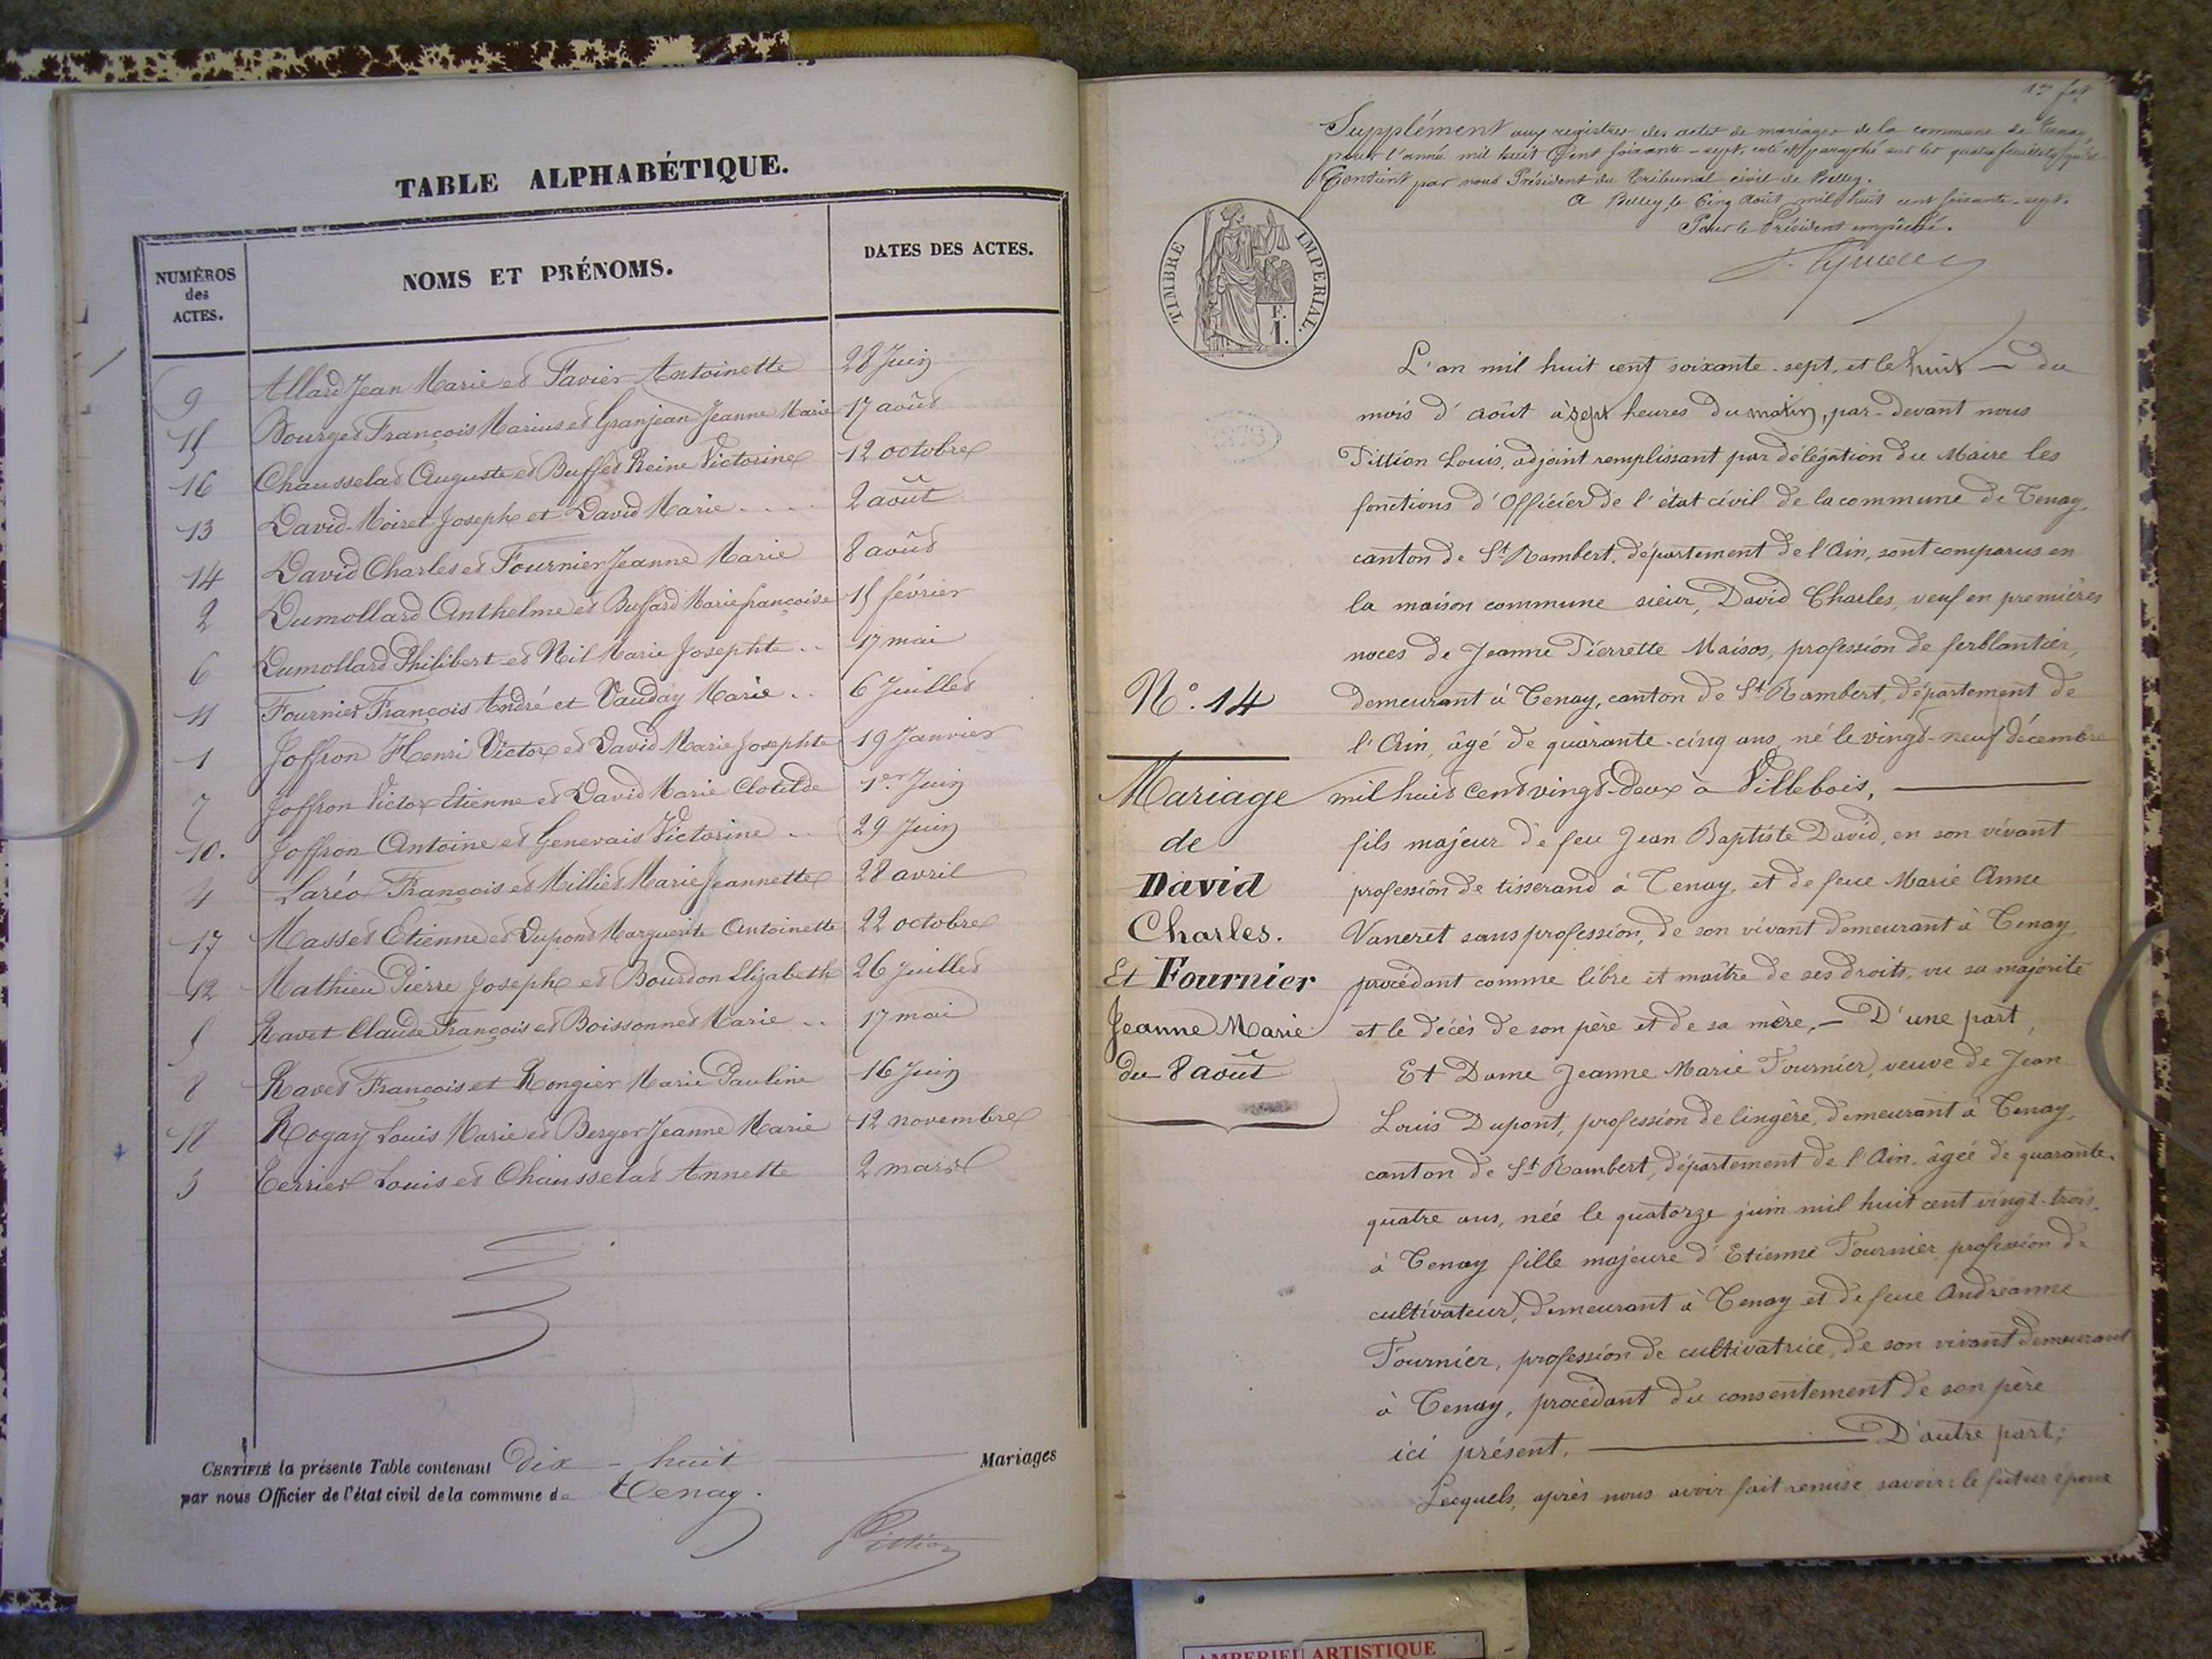 TABLE ALPHABÉTIQUE.
NUMÉROS des ACTES.
NOMS ET PRÉNOMS.
DATES DES ACTES.
9 Allard Jean Marie et Favier Antoinette 28 Juin
15 Bourget François Marius et Granjean Jeanne Marie 17 août
16 Chausselat Auguste et Buffet Reine Victorine 12 octobre
13 David-Moiret Joseph et David Marie .... 2 août
14 David Charles et Fournier Jeanne Marie 8 août
2 Dumollard Anthelme et Buffard Marie françoise 15 février
6 Dumollard Philibert et Nil Marie Josephte .. 17 mai
11 Fournier François André et Vauday Marie .. 6 Juillet
1 Joffron Henri Victor et David Marie Josephte 19 Janvier
7 Joffron Victor Etienne et David Marie Clotilde 1er Juin
10. Joffron Antoine et Genevais Victorine .. 29 Juin
4 Laréo François et Milliet Marie Jeannette 28 avril
17 Masset Etienne et Dupont Marguerite Antoinette 22 octobre
12 Mathieu Pierre Joseph et Bourdon Elizabeth 26 Juillet
5 Ravet Claude François et Boissonnet Marie .. 17 mai
8 Ravet François et Rongier Marie Pauline 16 Juin
18 Rogay Louis Marie et Berger Jeanne Marie 12 novembre
3 Terrier Louis et Chausselat Annette 2 mars
CERTIFIÉ la présente Table contenant dix-huit Mariages
par nous Officier de l'état civil de la commune de Tenay.
Pittion
Supplément aux registres des actes de mariages de la commune de Tenay,
pour l'année mil huit Cent soixante-sept, coté et paraphé sur les quatre feuillets qu'il
Contient par nous Président du Tribunal civil de Belley.
A Belley, le Cinq août mil huit cent soixante-sept.
Pour le Président empêché.
TIMBRE IMPERIAL.
F.
1.
L'an mil huit cent soixante-sept, et le huit — du
mois d'août à sept heures du matin, par-devant nous
Pittion Louis, adjoint remplissant par délégation du Maire les
fonctions d'Officier de l'état civil de la commune de Tenay,
canton de St Rambert, département de l'Ain, sont comparus en
la maison commune sieur, David Charles, veuf en premières
noces de Jeanne Pierrette Maisos, profession de ferblantier,
demeurant à Tenay, canton de St Rambert, département de
l'Ain, âgé de quarante-cinq ans, né le vingt-neuf décembre
mil huit cent vingt-deux à Villebois,
fils majeur de feu Jean Baptiste David, en son vivant
profession de tisserand à Tenay, et de feue Marie Anne
Vaneret sans profession, de son vivant demeurant à Tenay,
procédant comme libre et maître de ses droits, vu sa majorité
et le décès de son père et de sa mère, — D'une part,
Et Dame Jeanne Marie Fournier, veuve de Jean
Louis Dupont, profession de lingère, demeurant à Tenay,
canton de St Rambert, département de l'Ain, âgée de quarante-
quatre ans, née le quatorze juin mil huit cent vingt-trois,
à Tenay fille majeure d'Etienne Fournier profession de
cultivateur, demeurant à Tenay et de feue Andréanne
Fournier, profession de cultivatrice, de son vivant demeurant
à Tenay, procédant du consentement de son père
ici présent. — D'autre part;
Lesquels, après nous avoir fait remise savoir: le futur époux
N°. 14
Mariage
de
David
Charles.
Et Fournier
Jeanne Marie
du 8 août
AMBERIEU ARTISTIQUE